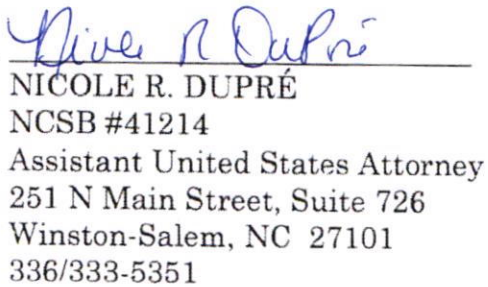 Nicole R DuPré
NICOLE R. DUPRÉ
NCSB #41214
Assistant United States Attorney
251 N Main Street, Suite 726
Winston-Salem, NC 27101
336/333-5351